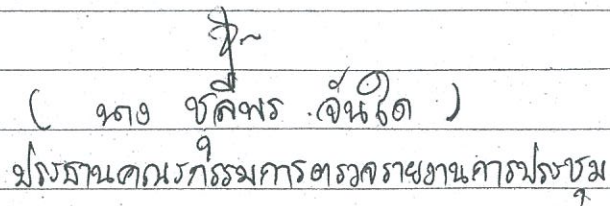 ( นาง ชลีพร จันใด )
ประธานคณะกรรมการตรวจรายงานการประชุม